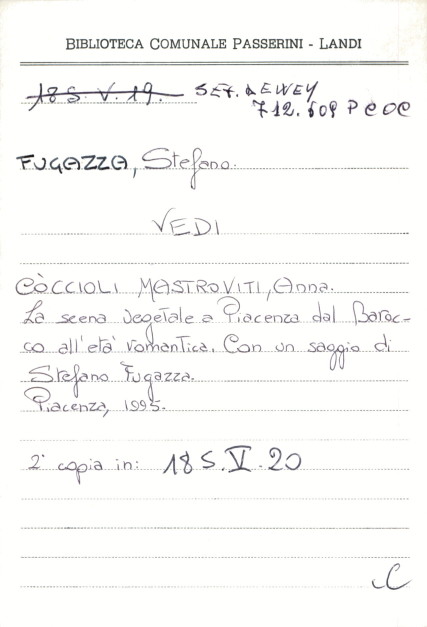 BIBLIOTECA COMUNALE PASSERINI - LANDI
18 S. V. 19. SEZ. DEWEY
712.609 P COC
FUGAZZA, Stefano.
VEDI
CÒCCIOLI MASTROVITI, Anna.
La scena vegetale a Piacenza dal Baroc-
co all'età romantica. Con un saggio di
Stefano Fugazza.
Piacenza, 1995.
2ª copia in: 18 S. V. 20
C